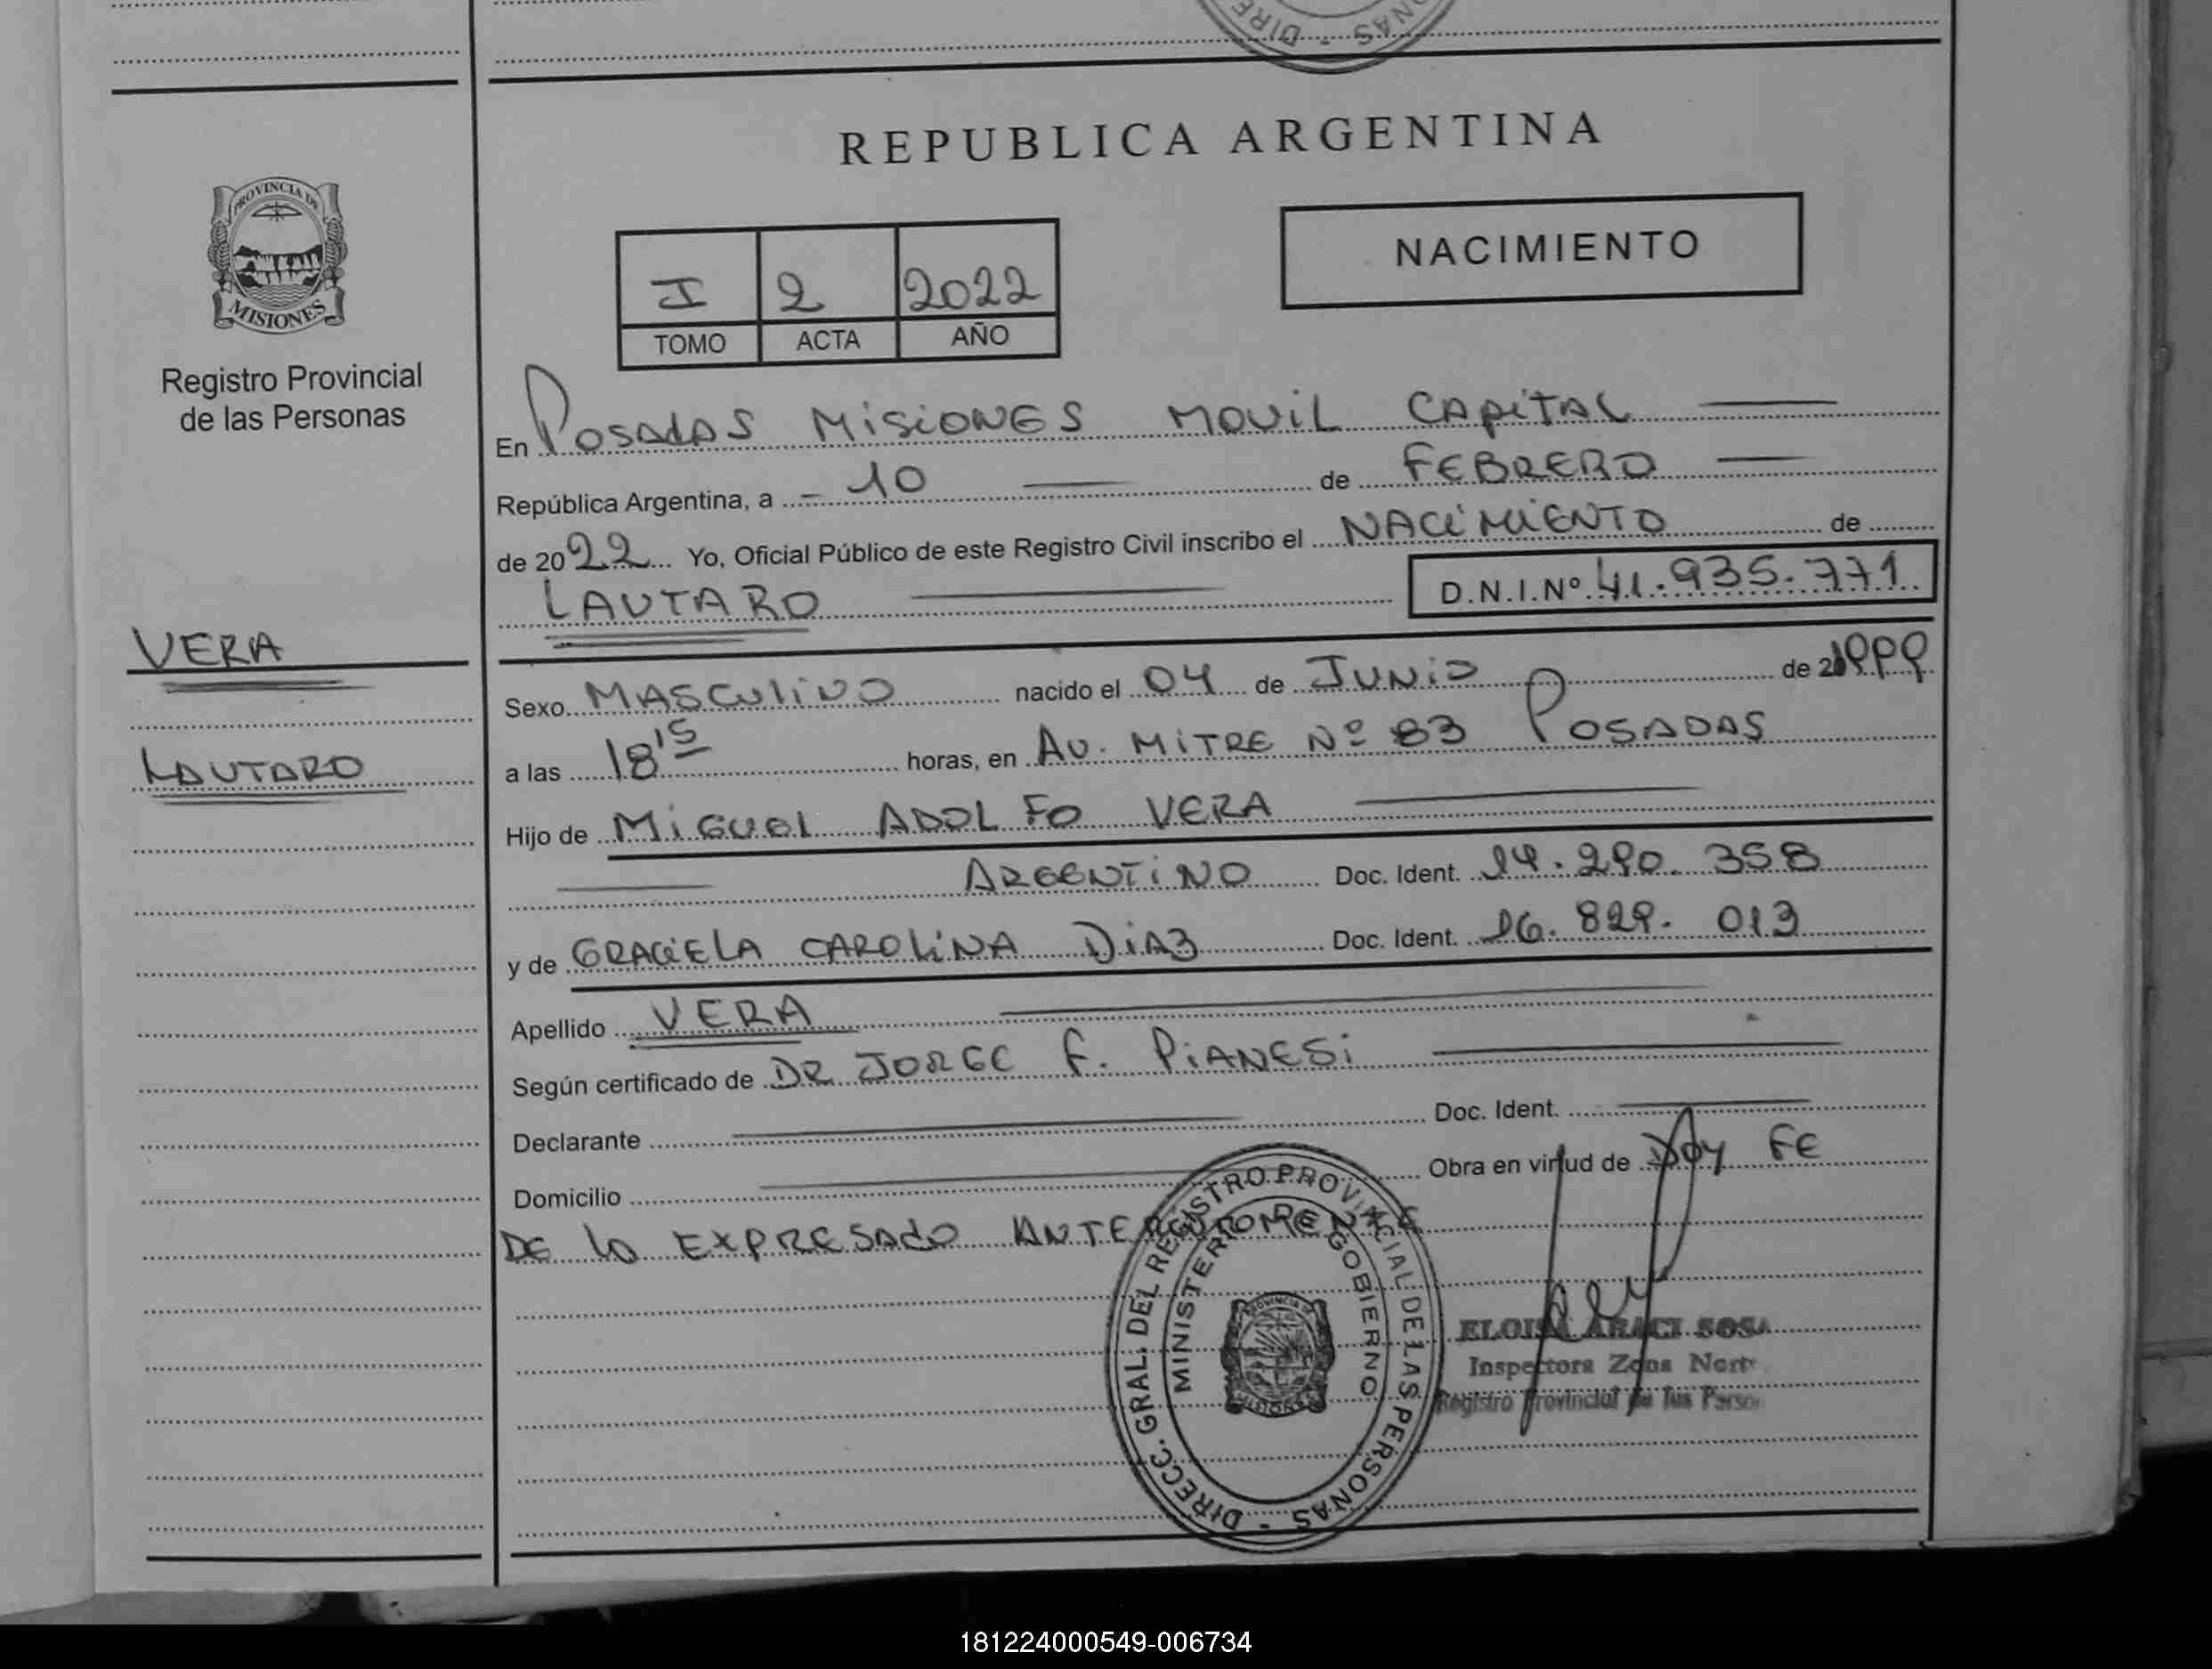 REPUBLICA ARGENTINA
PROVINCIA DE
MISIONES
Registro Provincial
de las Personas
NACIMIENTO
I 2 2022
TOMO ACTA AÑO
En POSADAS MISIONES MOVIL CAPITAL
República Argentina, a 10 de FEBRERO
de 2022 Yo, Oficial Público de este Registro Civil inscribo el NACIMIENTO de
LAUTARO D.N.I.Nº 41.935.771
VERA
LAUTARO
Sexo MASCULINO nacido el 04 de JUNIO de 1999
a las 18 15 horas, en AV. MITRE Nº 83 POSADAS
Hijo de MIGUEL ADOLFO VERA
ARGENTINO Doc. Ident. 14.290.358
y de GRACIELA CAROLINA DIAZ Doc. Ident. 16.829.013
Apellido VERA
Según certificado de DR JORGE F. PIANESI
Declarante Doc. Ident.
Domicilio Obra en virtud de DOY FE
DE LO EXPRESADO ANTERIORMENTE
DIRECC. GRAL. DEL REGISTRO PROVINCIAL DE LAS PERSONAS -
MINISTERIO DE GOBIERNO
ELOISA ARACI SOSA
Inspectora Zona Norte
Registro Provincial de las Person
181224000549-006734